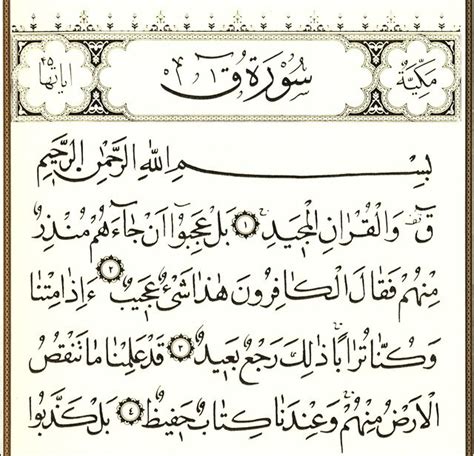 مَكِّيَّةٌ سُورَةُ قٓ اٰيَاتُهَا ٤٥
بِسْمِ اللّٰهِ الرَّحْمٰنِ الرَّحِيمِ
قٓ وَالْقُرْاٰنِ الْمَجِيدِ ١ بَلْ عَجِبُٓوا اَنْ جَٓاءَهُمْ مُنْذِرٌ
مِنْهُمْ فَقَالَ الْكَافِرُونَ هٰذَا شَيْءٌ عَجِيبٌ ٢ ءَاِذَا مِتْنَا
وَكُنَّا تُرَابًا ذٰلِكَ رَجْعٌ بَعِيدٌ ٣ قَدْ عَلِمْنَا مَا تَنْقُصُ
الْاَرْضُ مِنْهُمْ وَعِنْدَنَا كِتَابٌ حَفِيظٌ ٤ بَلْ كَذَّبُوا